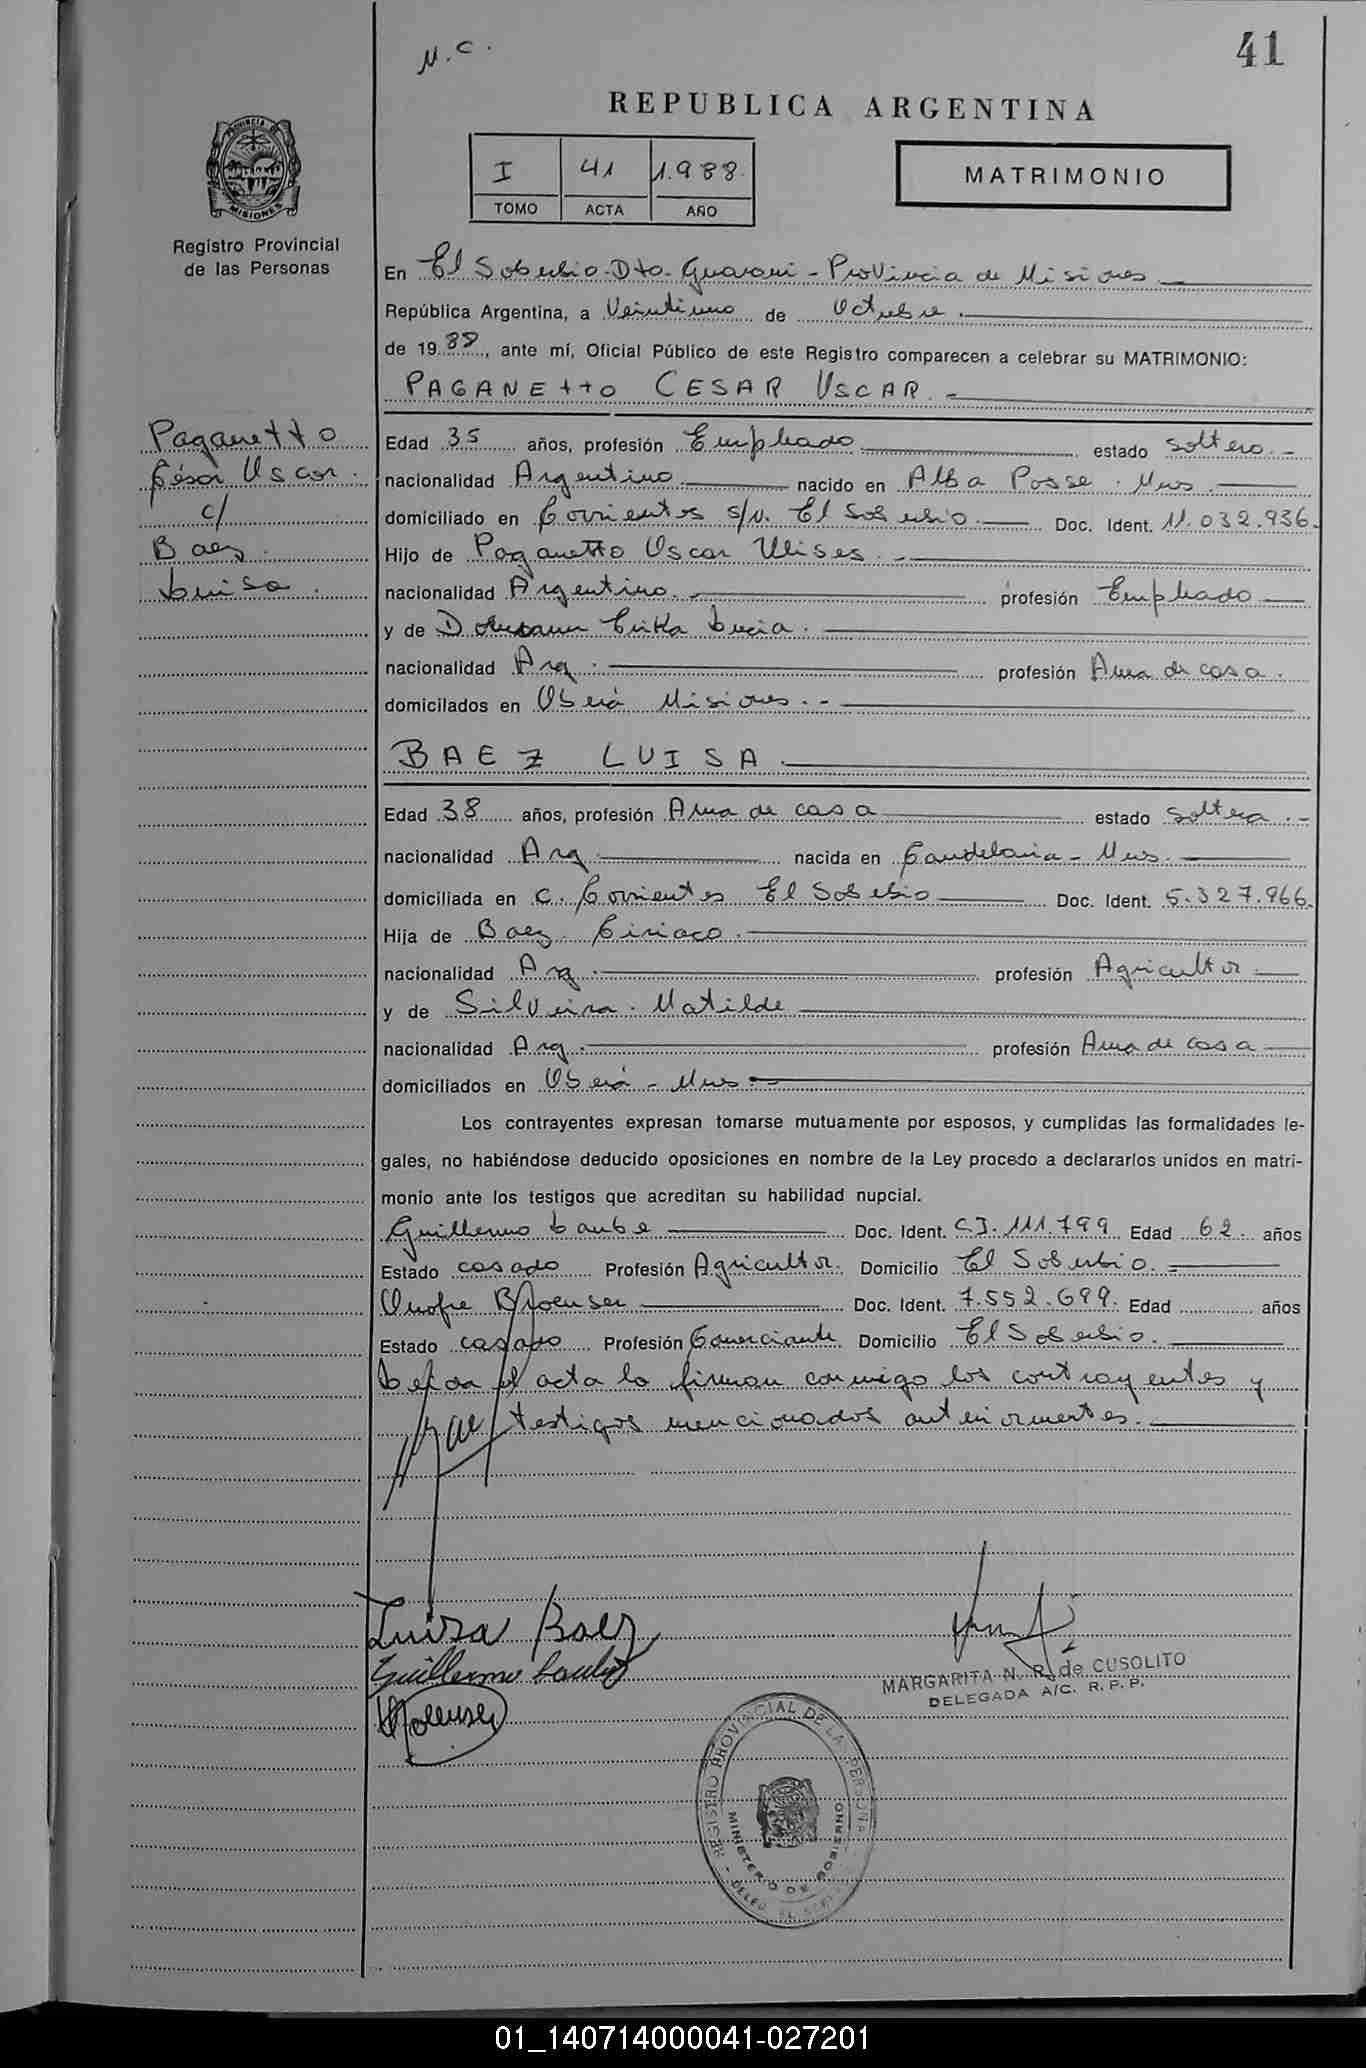 M.C.
41
REPUBLICA ARGENTINA
PROVINCIA DE
MISIONES
Registro Provincial
de las Personas
I 41 1.988.
TOMO ACTA AÑO
MATRIMONIO
En El Soberbio-Dto-Guarani-Provincia de Misiones
República Argentina, a Veintiuno de Octubre.
de 19 88, ante mí, Oficial Público de este Registro comparecen a celebrar su MATRIMONIO:
PAGANEttO CESAR OSCAR.
Paganetto
César Oscar.
c/
Baez.
Luisa.
Edad 35 años, profesión Empleado estado soltero.-
nacionalidad Argentino. nacido en Alba Posse. Mnes.
domiciliado en Corrientes s/n. El Soberbio. Doc. Ident. 11.032.936.
Hijo de Paganetto Oscar Ulises.
nacionalidad Argentino. profesión Empleado
y de Erika Lucia.
nacionalidad Arg. profesión Ama de casa.
domicilados en Oberá Misiones.-
BAEZ LUISA.
Edad 38 años, profesión Ama de casa estado soltera.-
nacionalidad Arg. nacida en Candelaria-Mnes.
domiciliada en C. Corrientes El Soberbio Doc. Ident. 5.327.966.
Hija de Baez. Ciriaco.
nacionalidad Arg. profesión Agricultor
y de Silveira. Matilde
nacionalidad Arg. profesión Ama de casa
domiciliados en Oberá-Mnes
Los contrayentes expresan tomarse mutuamente por esposos, y cumplidas las formalidades le-
gales, no habiéndose deducido oposiciones en nombre de la Ley procedo a declararlos unidos en matri-
monio ante los testigos que acreditan su habilidad nupcial.
Guillermo Laube Doc. Ident. C.I. 111.799 Edad 62. años
Estado casado Profesión Agricultor. Domicilio El Soberbio.
Onofre Doc. Ident. 7.552.699. Edad años
Estado casado Profesión Comerciante Domicilio El Soberbio.
Leida el acta la firman conmigo los contrayentes y
testigos mencionados anteriormentes.
Luisa Baez
Guillermo
MARGARITA N. R. de CUSOLITO
DELEGADA A/C. R. P. P.
REGISTRO PROVINCIAL DE LA PERSONA
MINISTERIO DE GOBIERNO
01_140714000041-027201